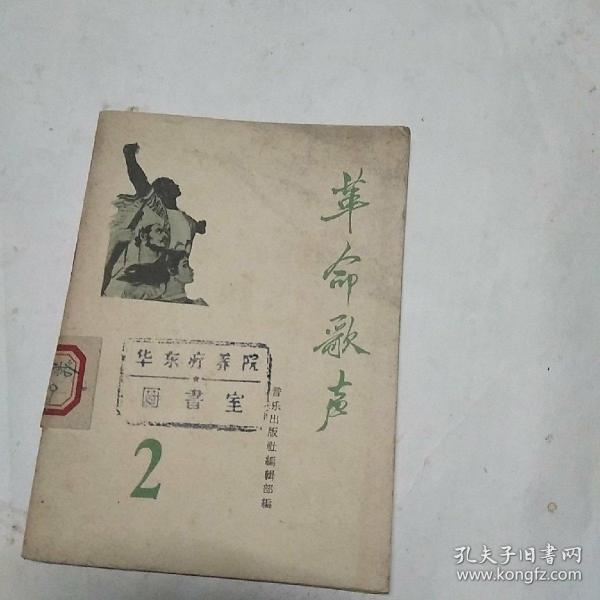 革命歌声
音乐出版社編輯部編
华东疗养院
图書室
2
孔夫子旧书网
www.kongfz.com